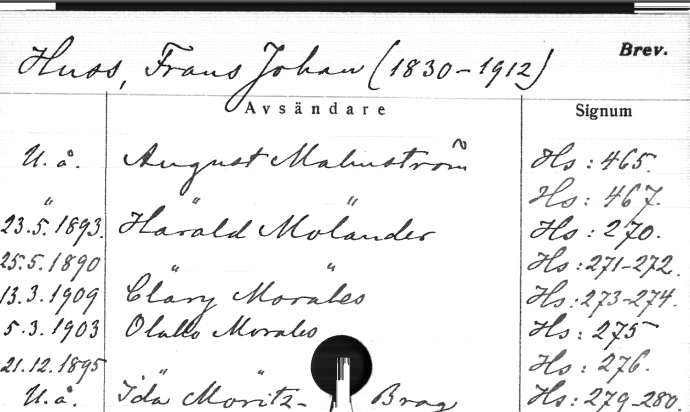 Huss, Frans Johan (1830-1912) Brev.
Avsändare Signum
U.å. August Malmström Hs: 465.
" " " Hs: 467.
23.5.1893. Harald Molander Hs: 270.
25.5.1890 " " Hs: 271-272.
13.3.1909 Clary Morales Hs: 273-274.
5.3.1903 Olallo Morales Hs: 275
21.12.1895 " " Hs: 276.
U.å. Ida Moritz- Brag Hs: 279-280.